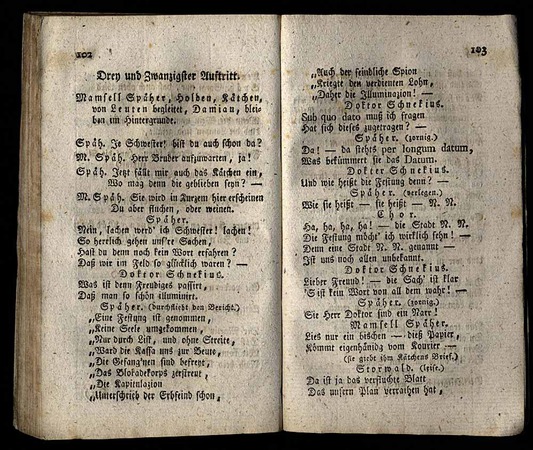 102
Drey und Zwanzigster Auftritt.
Mamsell Späher, Holden, Kätchen,
von Leuten begleitet, Damian, blei-
ben im Hintergrunde.
Späh. Je Schwester! bist du auch schon da?
M. Späh. Herr Bruder aufzuwarten, ja!
Späh. Jetzt fällt mir auch das Kätchen ein,
Wo mag denn die geblieben seyn? —
M. Späh. Sie wird in Kurzem hier erscheinen
Du aber fluchen, oder weinen.
Späher.
Nein, lachen werd' ich Schwester! lachen!
So herrlich gehen uns're Sachen,
Hast du denn noch kein Wort erfahren?
Daß wir im Feld so glücklich waren? —
Doktor Schnekius.
Was ist denn Freudiges passirt,
Daß man so schön illuminirt.
Späher. (durchliest den Bericht.)
„Eine Festung ist genommen,
„Keine Seele umgekommen,
„Nur durch List, und ohne Streite,
„Ward die Kassa uns zur Beute,
„Die Gefang'nen sind befreyt,
„Das Blokadekorps zerstreut,
„Die Kapitulazion
„Unterschrieb der Erbfeind schon,
103
„Auch der feindliche Spion
„Kriegte den verdienten Lohn,
„Daher die Illuminazion! —
Doktor Schnekius.
Sub quo dato muß ich fragen
Hat sich dieses zugetragen? —
Späher. (zornig.)
Da! — da stehts per longum datum,
Was bekümmert sie das Datum.
Doktor Schnekius.
Und wie heißt die Festung denn? —
Späher. (verlegen.)
Wie sie heißt — sie heißt — N. N.
Chor.
Ha, ha, ha, ha! — die Stadt N. N.
Die Festung möcht' ich wirklich sehn! —
Denn eine Stadt N. N. genannt —
Ist uns noch allen unbekannt.
Doktor Schnekius.
Lieber Freund! — die Sach' ist klar
'S ist kein Wort von all dem wahr! —
Späher. (zornig.)
Sie Herr Doktor sind ein Narr!
Mamsell Späher.
Lies nur ein bischen — dieß Papier,
Kömmt eigenhändig vom Kourier —
(sie giebt ihm Kätchens Brief.)
Storwald. (leise.)
Da ist ja das verfluchte Blatt
Das unsern Plan verrathen hat,